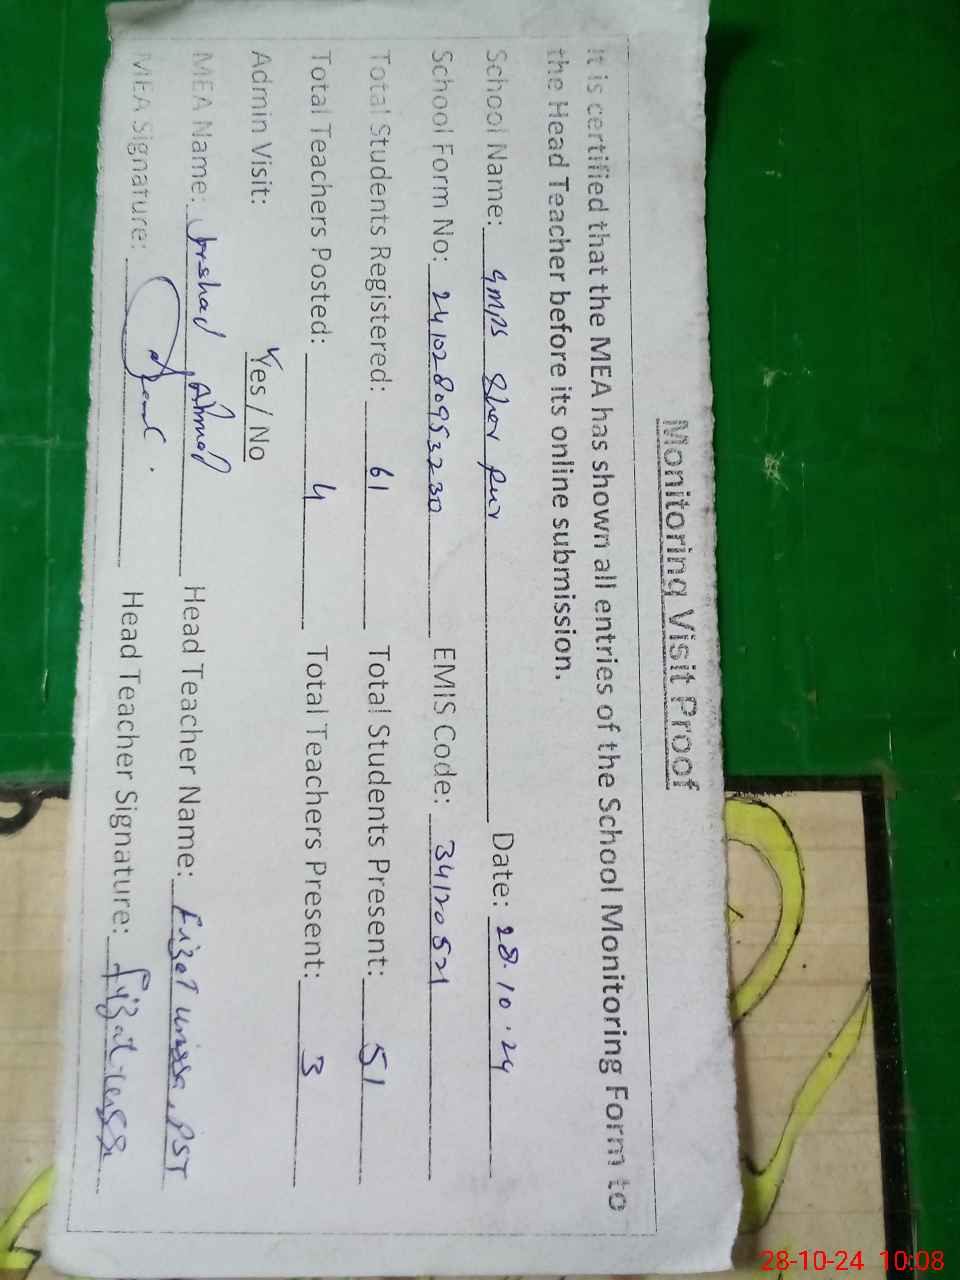 Monitoring Visit Proof
It is certified that the MEA has shown all entries of the School Monitoring Form to
the Head Teacher before its online submission.
School Name: GMPS Sher Pur Date: 28.10.24
School Form No: 2410280953230 EMIS Code: 34120521
Total Students Registered: 61 Total Students Present: 51
Total Teachers Posted: 4 Total Teachers Present: 3
Admin Visit: Yes / No
MEA Name: Arshad Ahmad Head Teacher Name: Fizat unissa, PST
MEA Signature: Head Teacher Signature:
28-10-24 10:08